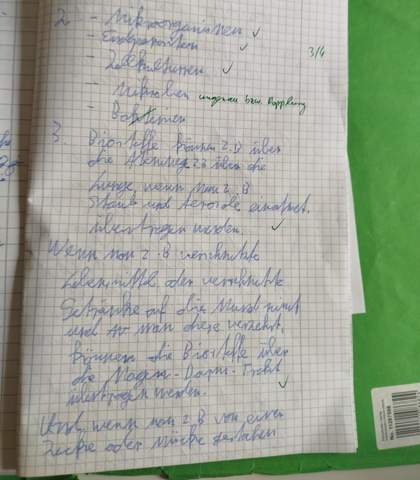 2. - Mikroorganismen ✓
- Endoparasiten ✓
3/4
- Zellkulturen ✓
- Mikroben ungenau bzw. Dopplung
- Bakterien
3. Biostoffe können z.B über
die Atemwege z.B über die
Lunge, wenn man z.B
Staub und Aerosole einatmet,
übertragen werden. ✓
Wenn man z.B verschmutzte
Lebensmittel oder verschmutzte
Getränke auf die Mund nimmt
und man diese verzehrt,
können die Biostoffe über
die Magen-Darm-Trakt
übertragen werden. ✓
Und, wenn man z.B von einer
Zecke oder Mücke gestochen